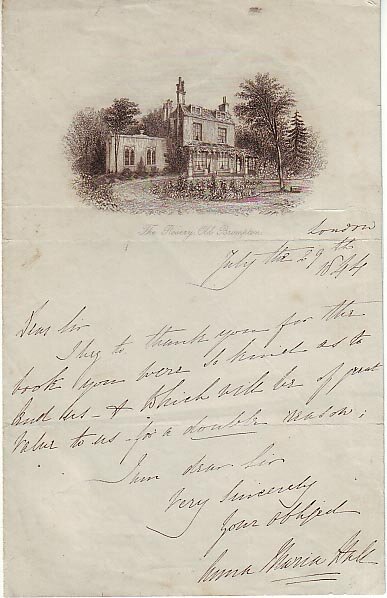 The Rosery, Old Brompton.
London
July the 29th
1844
Dear Sir
I beg to thank you for the
book you were so kind as to
send us - & which will be of great
value to us - for a double reason;
I am dear Sir
Very Sincerely
Your obliged
Anna Maria Hall